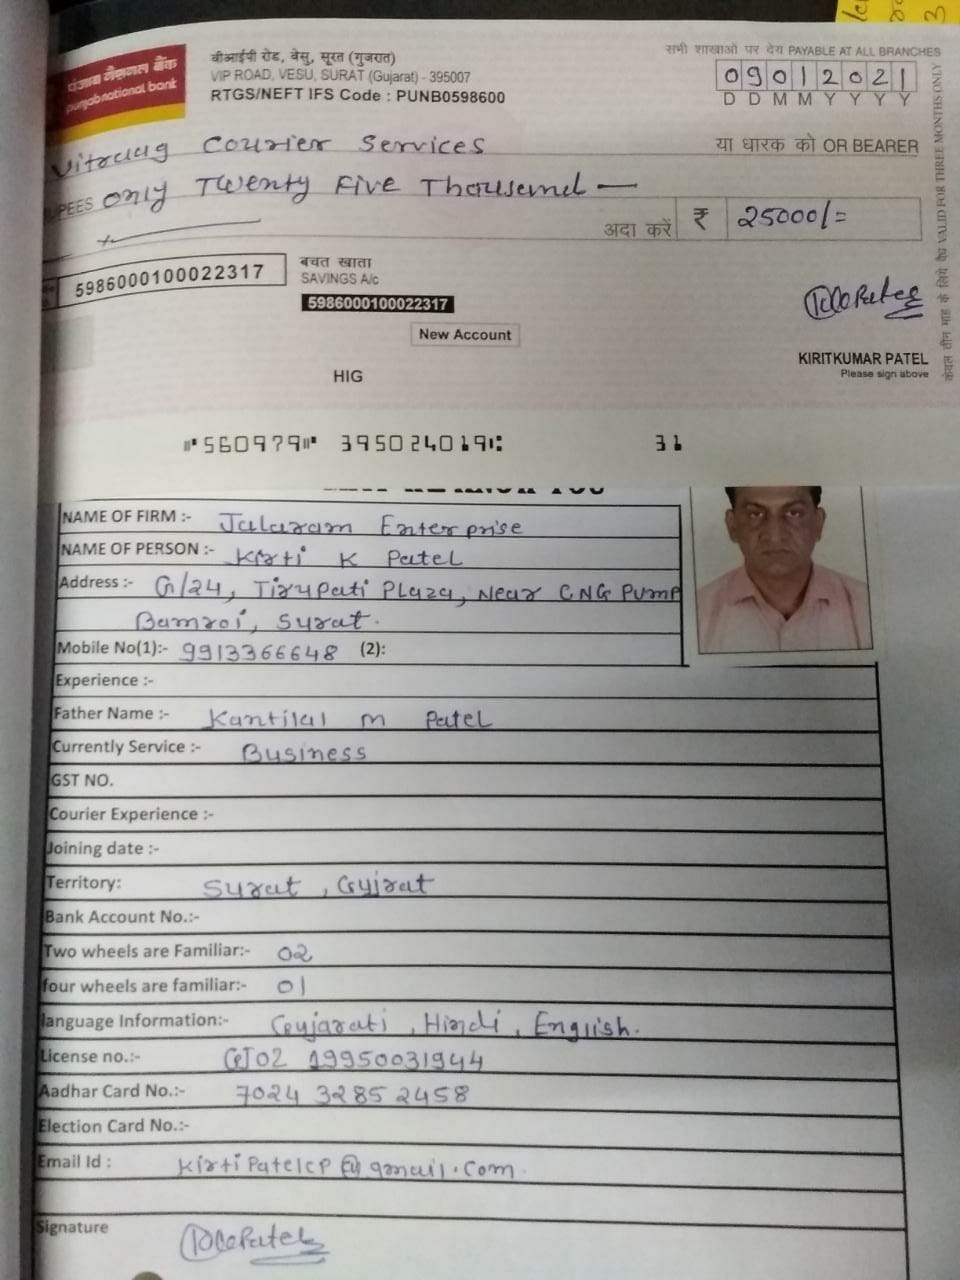 पंजाब नैशनल बैंक
punjab national bank
वीआईपी रोड, वेसु, सूरत (गुजरात)
VIP ROAD, VESU, SURAT (Gujarat) - 395007
RTGS/NEFT IFS Code : PUNB0598600
सभी शाखाओं पर देय PAYABLE AT ALL BRANCHES
09012021
D D M M Y Y Y Y
Vitraag Courier Services या धारक को OR BEARER
UPEES only Twenty Five Thousand —
अदा करें ₹ 25000/=
5986000100022317
बचत खाता
SAVINGS A/c
5986000100022317
New Account
HIG
KIRITKUMAR PATEL
Please sign above
केवल तीन माह के लिये वैध VALID FOR THREE MONTHS ONLY
⑈560979⑈ 395024019⑆ 31
NAME OF FIRM :- Jalaram Enterprise
NAME OF PERSON :- Kirti K Patel
Address :- G/24, Tirupati Plaza, Near CNG Pump
Bamroi, Surat.
Mobile No(1):- 9913366648 (2):
Experience :-
Father Name :- Kantilal m Patel
Currently Service :- Business
GST NO.
Courier Experience :-
Joining date :-
Territory: Surat , Gujrat
Bank Account No.:-
Two wheels are Familiar:- 02
four wheels are familiar:- 01
language Information:- Gujarati , Hindi , English.
License no.:- GJ02 19950031944
Aadhar Card No.:- 7024 3285 2458
Election Card No.:-
Email Id : KirtiPatelcp@gmail.com.
Signature